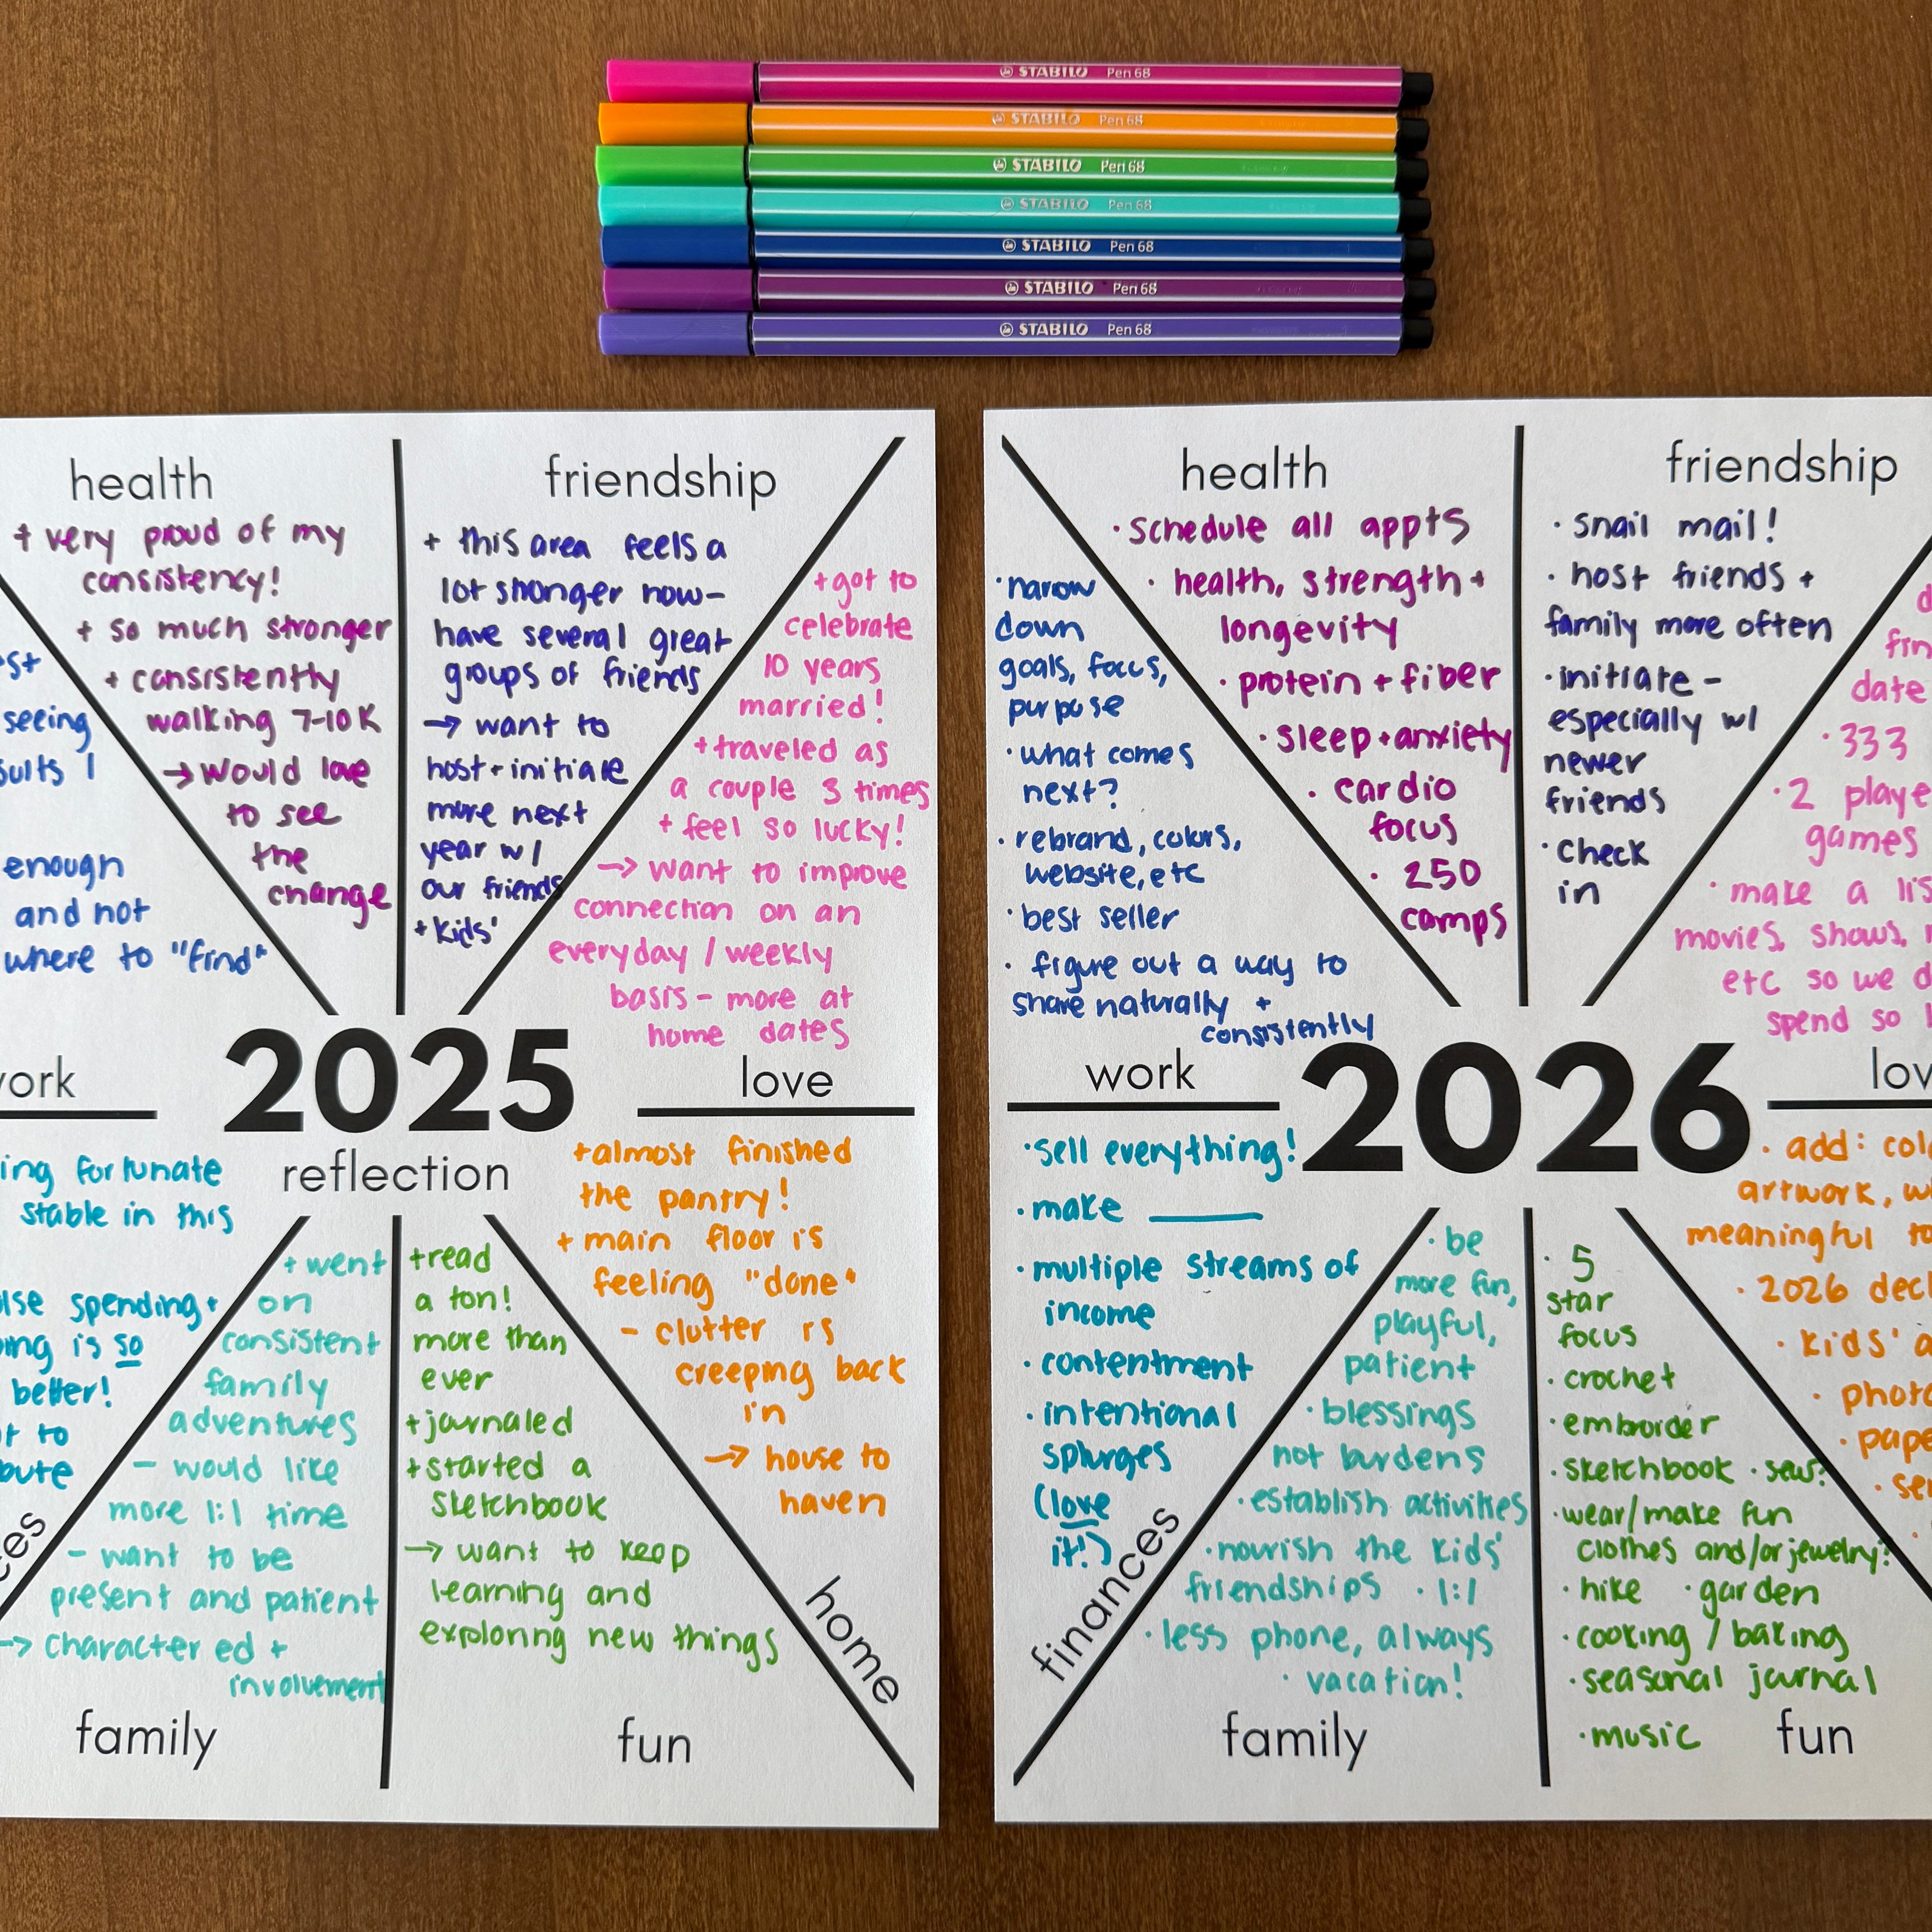 STABILO Pen 68
STABILO Pen 68
STABILO Pen 68
STABILO Pen 68
STABILO Pen 68
STABILO Pen 68
STABILO Pen 68
health
+ very proud of my
consistency!
+ so much stronger
+ consistently
walking 7-10K
→ would love
to see
the
change
friendship
+ this area feels a
lot stronger now-
have several great
groups of friends
→ want to
host + initiate
more next
year w/
our friends
+ kids'
+ got to
celebrate
10 years
married!
+ traveled as
a couple 3 times
+ feel so lucky!
→ want to improve
connection on an
everyday / weekly
basis - more at
home dates
love
seeing
enough
and not
where to "find"
2025
reflection
fortunate
stable in this
spending +
is so
better!
to
+ went
on
consistent
family
adventures
- would like
more 1:1 time
- want to be
present and patient
→ character ed +
involvement
family
+ read
a ton!
more than
ever
+ journaled
+ started a
sketchbook
→ want to keep
learning and
exploring new things
fun
+ almost finished
the pantry!
+ main floor is
feeling "done"
- clutter is
creeping back
in
→ house to
haven
home
health
· schedule all appts
· health, strength +
longevity
· protein + fiber
· sleep + anxiety
· cardio
focus
· 250
camps
friendship
· snail mail!
· host friends +
family more often
· initiate -
especially w/
newer
friends
· check
in
· narrow
down
goals, focus,
purpose
· what comes
next?
· rebrand, colors,
website, etc
· best seller
· figure out a way to
share naturally +
consistently
work
date
· 333
· 2
games
· make a
movies, shows,
etc so we
spend so
2026
· sell everything!
· make ____
· multiple streams of
income
· contentment
· intentional
splurges
(love
it!)
finances
· be
more fun,
playful,
patient
· blessings
not burdens
· establish activities
· nourish the kids'
friendships · 1:1
· less phone, always
· vacation!
family
· 5
star
focus
· crochet
· embroider
· sketchbook · sew?
· wear/make fun
clothes and/or jewelry?
· hike · garden
· cooking / baking
· seasonal journal
· music
fun
· add:
artwork,
meaningful
· 2026
· kids'